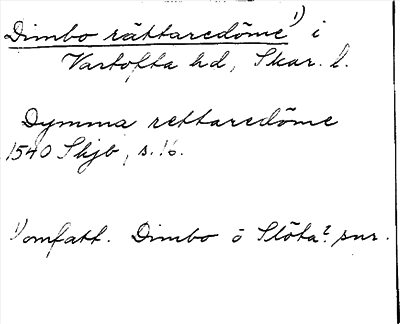 Dimbo rättaredöme 1) i
Vartofta hd, Skar. l.
Dymma rettaredöme
1540 Skjb, s. 16.
1) omfatt. Dimbo o Slöta? snr.